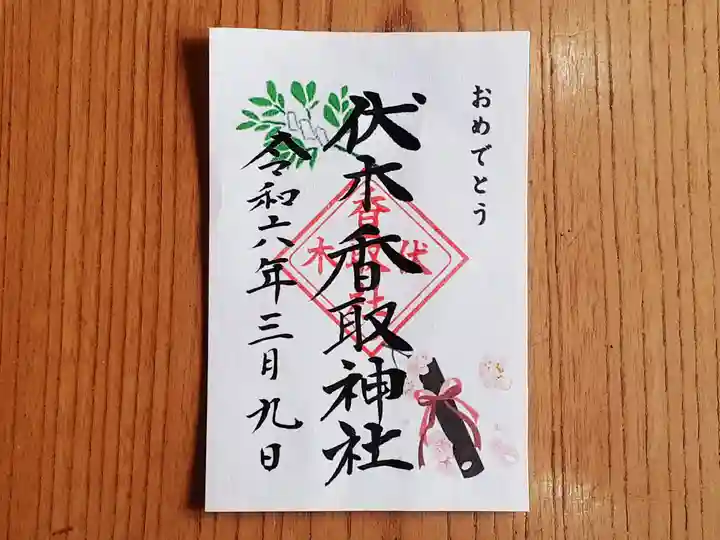 おめでとう
伏木香取神社
令和六年三月九日
伏木
香取社